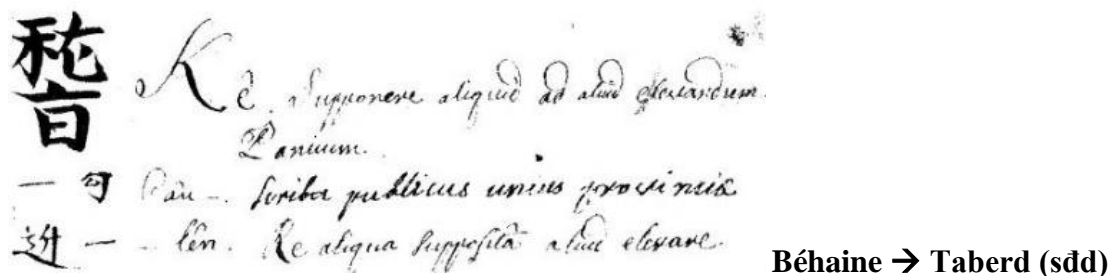 Kê. Supponere aliquid ad aliud elevandum.
Panium.
— 勾 Câu –. scriba publicus unius provinciæ
— – lên. Re aliqua supposita aliud elevare.
Béhaine → Taberd (sđd)